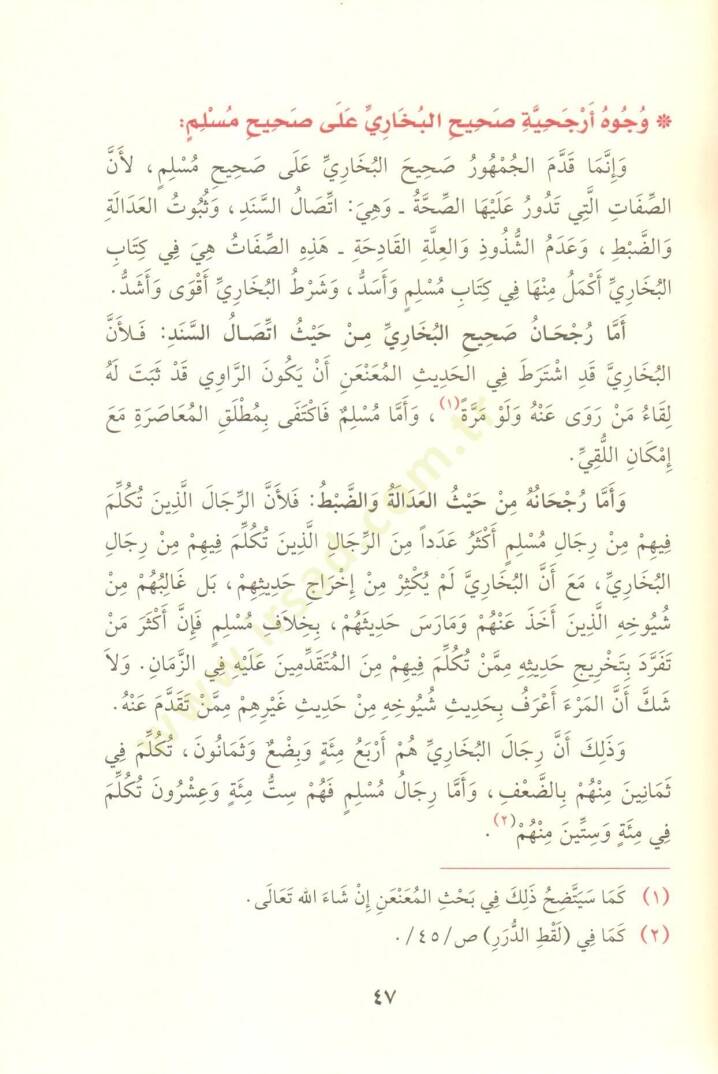 * وُجُوهُ أَرْجَحِيَّةِ صَحِيحِ البُخَارِيِّ عَلَى صَحِيحِ مُسْلِمٍ:
وَإِنَّمَا قَدَّمَ الجُمْهُورُ صَحِيحَ البُخَارِيِّ عَلَى صَحِيحِ مُسْلِمٍ، لأَنَّ
الصِّفَاتِ الَّتِي تَدُورُ عَلَيْهَا الصِّحَّةُ ـ وَهِيَ: اتِّصَالُ السَّنَدِ، وَثُبُوتُ العَدَالَةِ
وَالضَّبْطِ، وَعَدَمُ الشُّذُوذِ وَالعِلَّةِ القَادِحَةِ ـ هَذِهِ الصِّفَاتُ هِيَ فِي كِتَابِ
البُخَارِيِّ أَكْمَلُ مِنْهَا فِي كِتَابِ مُسْلِمٍ وَأَسَدُّ، وَشَرْطُ البُخَارِيِّ أَقْوَى وَأَشَدُّ.
أَمَّا رُجْحَانُ صَحِيحِ البُخَارِيِّ مِنْ حَيْثُ اتِّصَالُ السَّنَدِ: فَلأَنَّ
البُخَارِيَّ قَدِ اشْتَرَطَ فِي الحَدِيثِ المُعَنْعَنِ أَنْ يَكُونَ الرَّاوِي قَدْ ثَبَتَ لَهُ
لِقَاءُ مَنْ رَوَى عَنْهُ وَلَوْ مَرَّةً(١)، وَأَمَّا مُسْلِمٌ فَاكْتَفَى بِمُطْلَقِ المُعَاصَرَةِ مَعَ
إِمْكَانِ اللُّقِيِّ.
وَأَمَّا رُجْحَانُهُ مِنْ حَيْثُ العَدَالَةُ وَالضَّبْطُ: فَلأَنَّ الرِّجَالَ الَّذِينَ تُكُلِّمَ
فِيهِمْ مِنْ رِجَالِ مُسْلِمٍ أَكْثَرُ عَدَداً مِنَ الرِّجَالِ الَّذِينَ تُكُلِّمَ فِيهِمْ مِنْ رِجَالِ
البُخَارِيِّ، مَعَ أَنَّ البُخَارِيَّ لَمْ يُكْثِرْ مِنْ إِخْرَاجِ حَدِيثِهِمْ، بَل غَالِبُهُمْ مِنْ
شُيُوخِهِ الَّذِينَ أَخَذَ عَنْهُمْ وَمَارَسَ حَدِيثَهُمْ، بِخِلاَفِ مُسْلِمٍ فَإِنَّ أَكْثَرَ مَنْ
تَفَرَّدَ بِتَخْرِيجِ حَدِيثِهِ مِمَّنْ تُكُلِّمَ فِيهِمْ مِنَ المُتَقَدِّمِينَ عَلَيْهِ فِي الزَّمَانِ. وَلاَ
شَكَّ أَنَّ المَرْءَ أَعْرَفُ بِحَدِيثِ شُيُوخِهِ مِنْ حَدِيثِ غَيْرِهِمْ مِمَّنْ تَقَدَّمَ عَنْهُ.
وَذَلِكَ أَنَّ رِجَالَ البُخَارِيِّ هُمْ أَرْبَعُ مِئَةٍ وَبِضْعٌ وَثَمَانُونَ، تُكُلِّمَ فِي
ثَمَانِينَ مِنْهُمْ بِالضَّعْفِ، وَأَمَّا رِجَالُ مُسْلِمٍ فَهُمْ سِتُّ مِئَةٍ وَعِشْرُونَ تُكُلِّمَ
فِي مِئَةٍ وَسِتِّينَ مِنْهُمْ(٢).
(١) كَمَا سَيَتَّضِحُ ذَلِكَ فِي بَحْثِ المُعَنْعَنِ إِنْ شَاءَ الله تَعَالَى.
(٢) كَمَا فِي (لَقْطِ الدُّرَرِ) ص/٤٥/.
٤٧